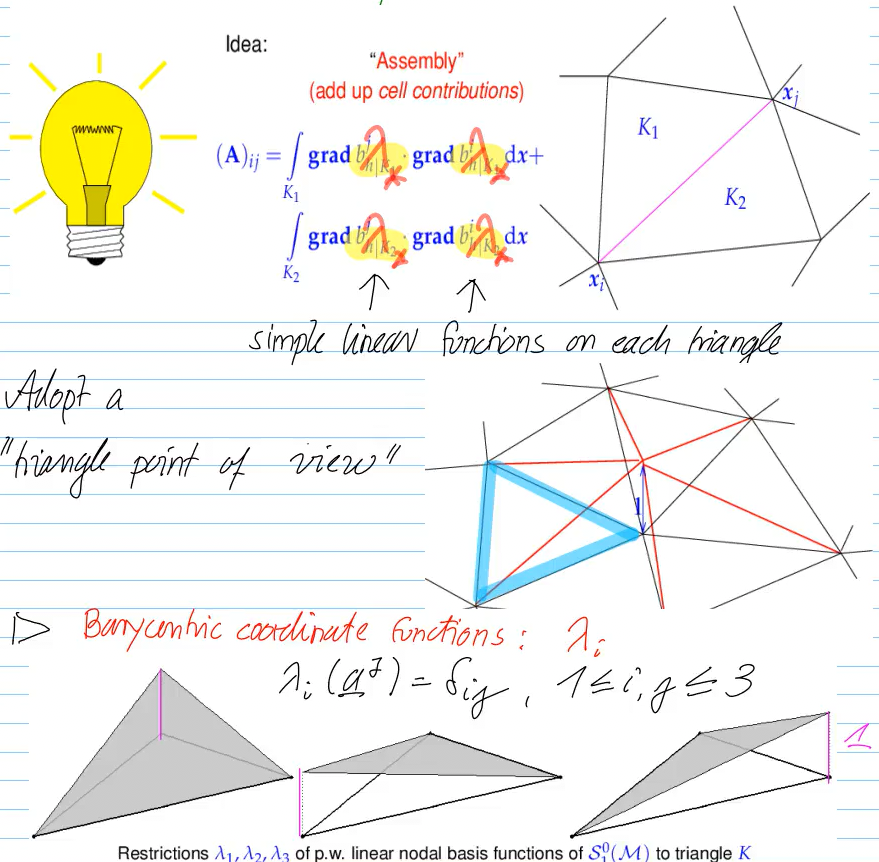 Idea:
"Assembly"
(add up cell contributions)
(A)ᵢⱼ = ∫_{K₁} grad λ · grad λ dx +
∫_{K₂} grad λ · grad λ dx
K₁
K₂
xⱼ
xᵢ
simple linear functions on each triangle
Adopt a
"triangle point of view"
1
▷ Barycentric coordinate functions: λᵢ
λᵢ(a^j) = δᵢⱼ, 1 ≤ i, j ≤ 3
1
Restrictions λ₁, λ₂, λ₃ of p.w. linear nodal basis functions of S₁⁰(M) to triangle K